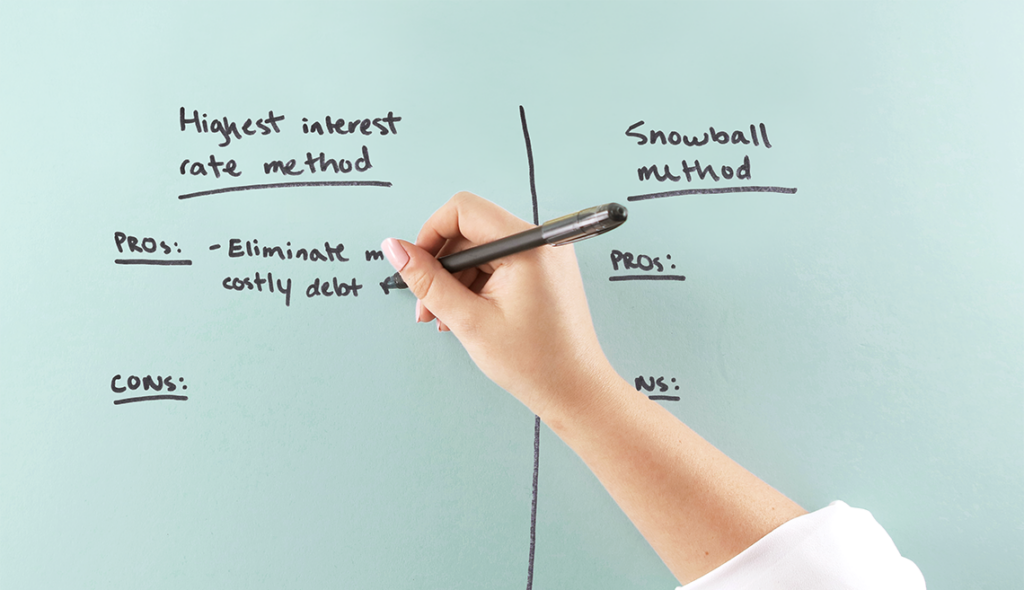 Highest interest
rate method
PROS: - Eliminate
costly debt
CONS:
Snowball
method
PROS: